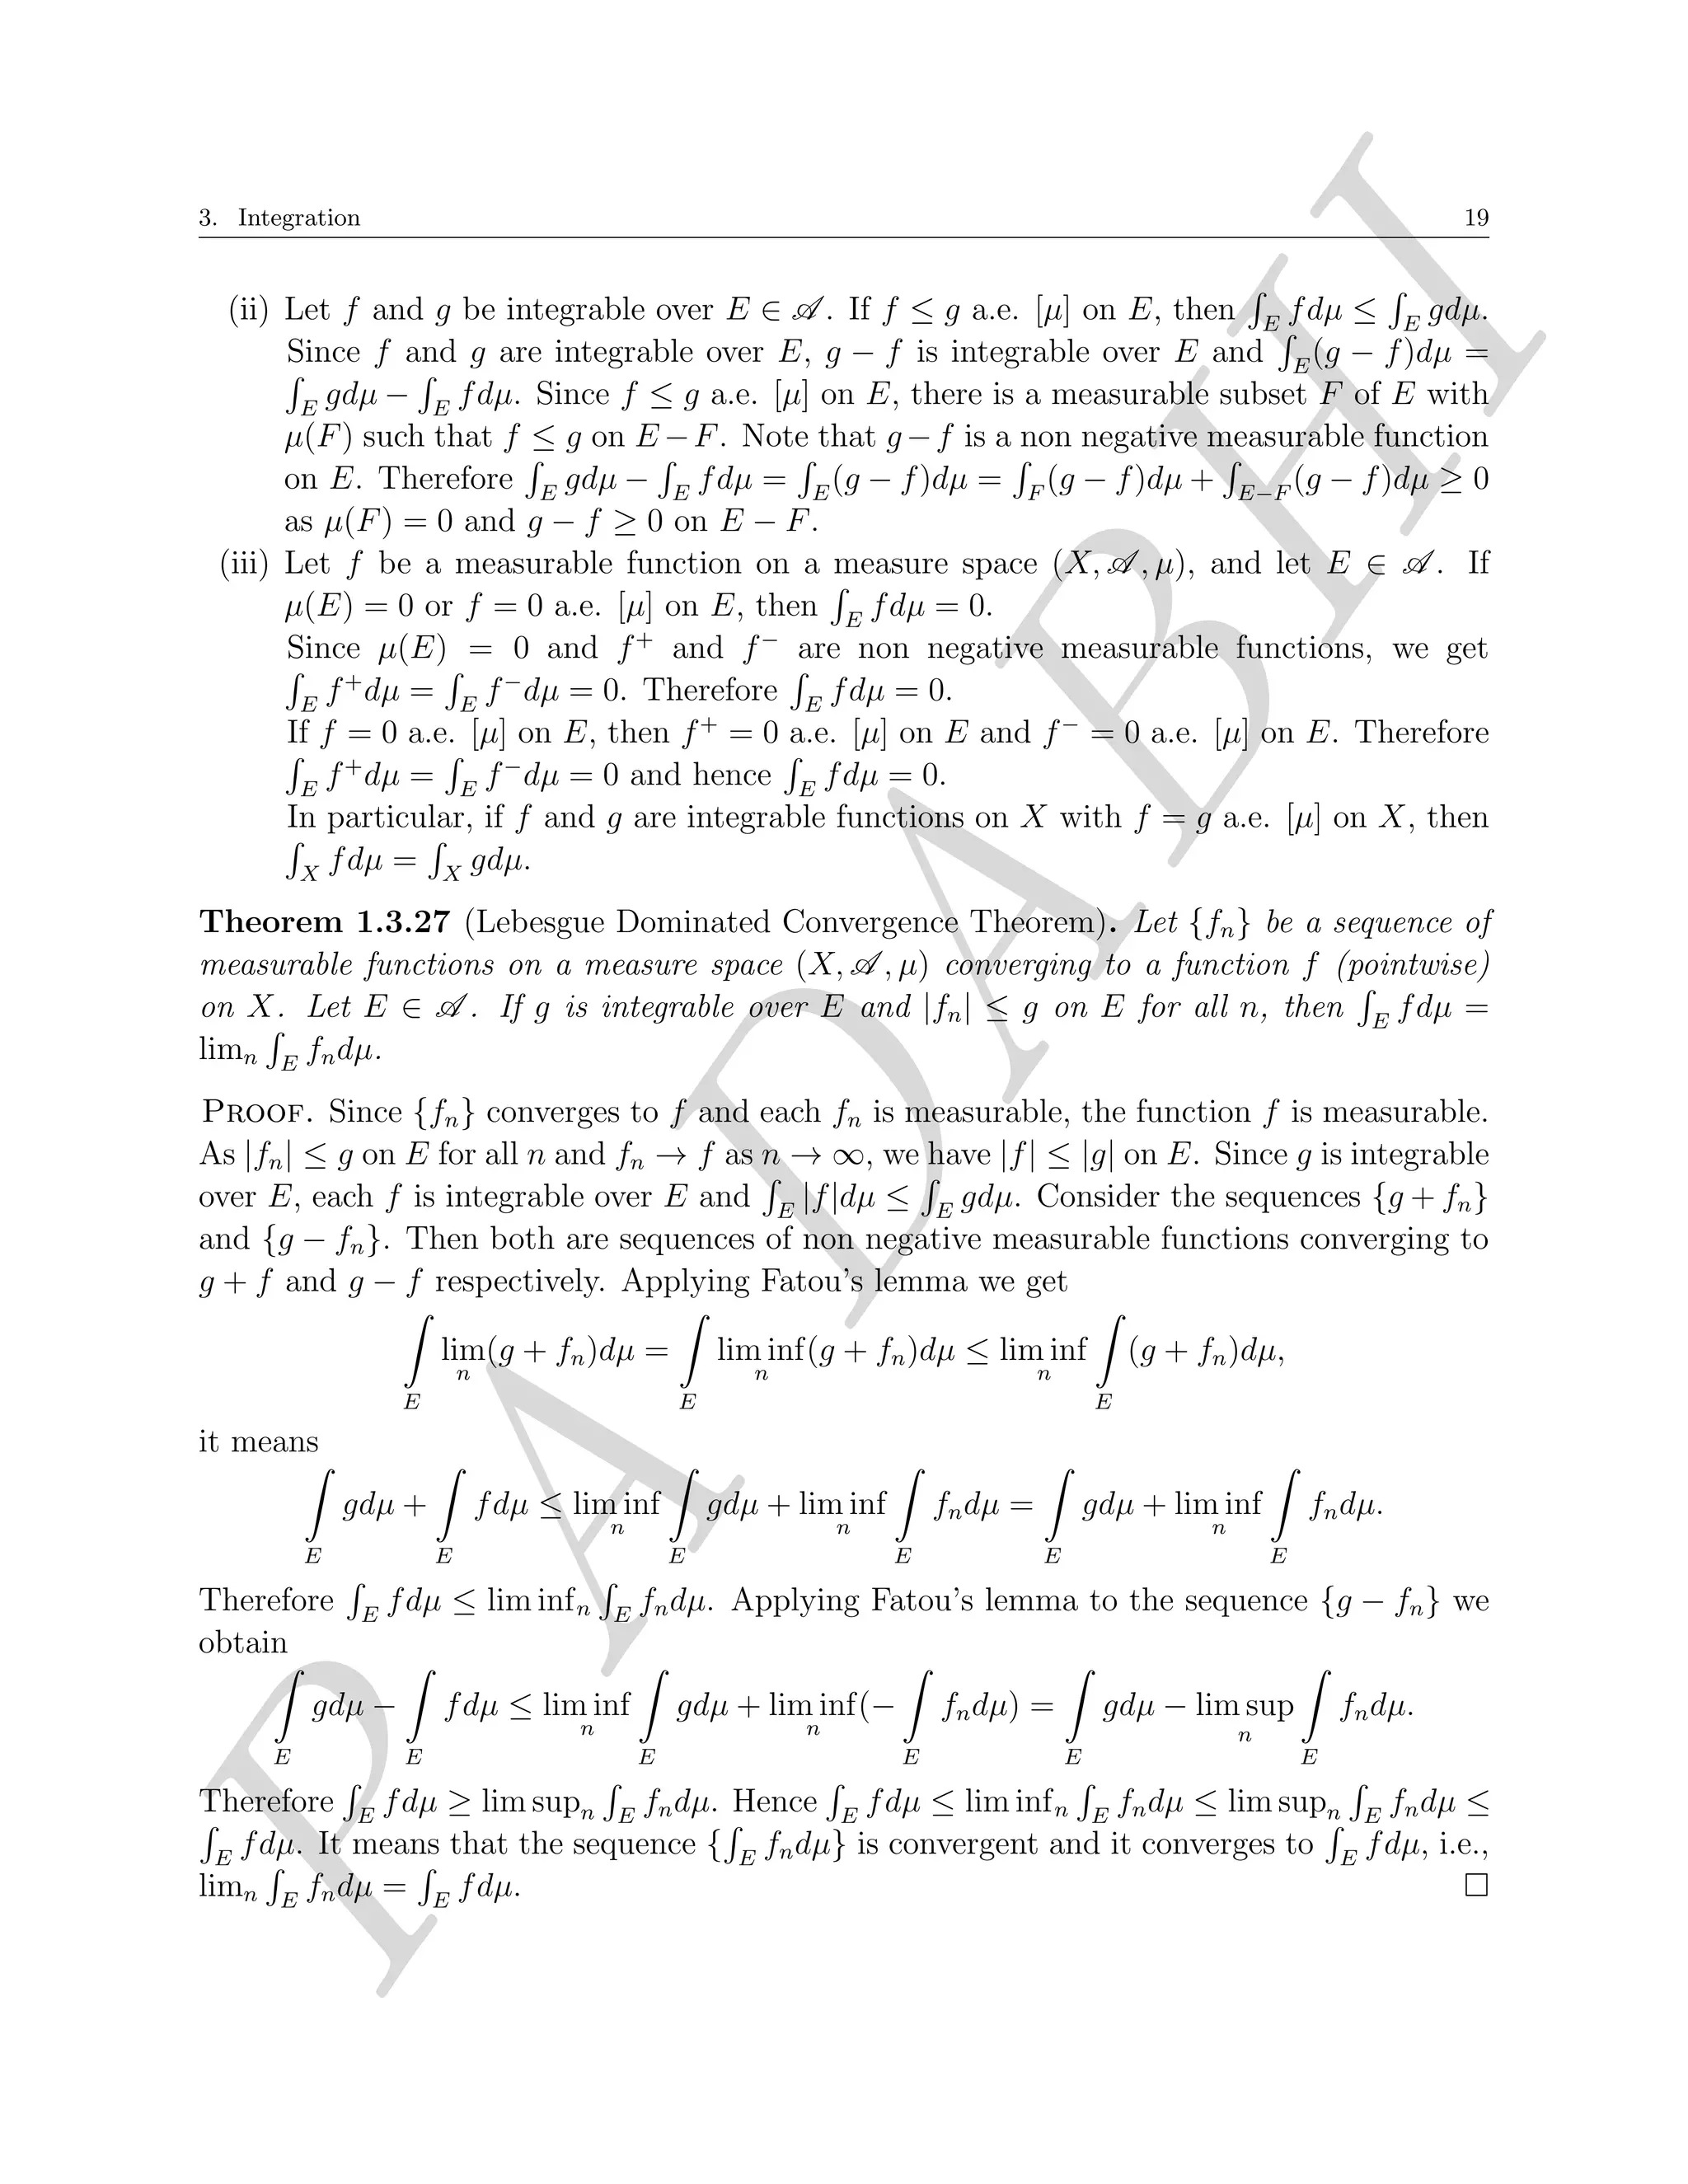 3. Integration 19
(ii) Let f and g be integrable over E ∈ 𝒜. If f ≤ g a.e. [μ] on E, then ∫_E fdμ ≤ ∫_E gdμ.
Since f and g are integrable over E, g − f is integrable over E and ∫_E(g − f)dμ =
∫_E gdμ − ∫_E fdμ. Since f ≤ g a.e. [μ] on E, there is a measurable subset F of E with
μ(F) such that f ≤ g on E − F. Note that g − f is a non negative measurable function
on E. Therefore ∫_E gdμ − ∫_E fdμ = ∫_E(g − f)dμ = ∫_F(g − f)dμ + ∫_{E−F}(g − f)dμ ≥ 0
as μ(F) = 0 and g − f ≥ 0 on E − F.
(iii) Let f be a measurable function on a measure space (X, 𝒜, μ), and let E ∈ 𝒜. If
μ(E) = 0 or f = 0 a.e. [μ] on E, then ∫_E fdμ = 0.
Since μ(E) = 0 and f⁺ and f⁻ are non negative measurable functions, we get
∫_E f⁺dμ = ∫_E f⁻dμ = 0. Therefore ∫_E fdμ = 0.
If f = 0 a.e. [μ] on E, then f⁺ = 0 a.e. [μ] on E and f⁻ = 0 a.e. [μ] on E. Therefore
∫_E f⁺dμ = ∫_E f⁻dμ = 0 and hence ∫_E fdμ = 0.
In particular, if f and g are integrable functions on X with f = g a.e. [μ] on X, then
∫_X fdμ = ∫_X gdμ.
Theorem 1.3.27 (Lebesgue Dominated Convergence Theorem). Let {f_n} be a sequence of
measurable functions on a measure space (X, 𝒜, μ) converging to a function f (pointwise)
on X. Let E ∈ 𝒜. If g is integrable over E and |f_n| ≤ g on E for all n, then ∫_E fdμ =
lim_n ∫_E f_n dμ.
PROOF. Since {f_n} converges to f and each f_n is measurable, the function f is measurable.
As |f_n| ≤ g on E for all n and f_n → f as n → ∞, we have |f| ≤ |g| on E. Since g is integrable
over E, each f is integrable over E and ∫_E |f|dμ ≤ ∫_E gdμ. Consider the sequences {g + f_n}
and {g − f_n}. Then both are sequences of non negative measurable functions converging to
g + f and g − f respectively. Applying Fatou's lemma we get
∫_E lim_n(g + f_n)dμ = ∫_E lim inf_n(g + f_n)dμ ≤ lim inf_n ∫_E (g + f_n)dμ,
it means
∫_E gdμ + ∫_E fdμ ≤ lim inf_n ∫_E gdμ + lim inf_n ∫_E f_n dμ = ∫_E gdμ + lim inf_n ∫_E f_n dμ.
Therefore ∫_E fdμ ≤ lim inf_n ∫_E f_n dμ. Applying Fatou's lemma to the sequence {g − f_n} we
obtain
∫_E gdμ − ∫_E fdμ ≤ lim inf_n ∫_E gdμ + lim inf_n(− ∫_E f_n dμ) = ∫_E gdμ − lim sup_n ∫_E f_n dμ.
Therefore ∫_E fdμ ≥ lim sup_n ∫_E f_n dμ. Hence ∫_E fdμ ≤ lim inf_n ∫_E f_n dμ ≤ lim sup_n ∫_E f_n dμ ≤
∫_E fdμ. It means that the sequence {∫_E f_n dμ} is convergent and it converges to ∫_E fdμ, i.e.,
lim_n ∫_E f_n dμ = ∫_E fdμ. □
P A DABHI